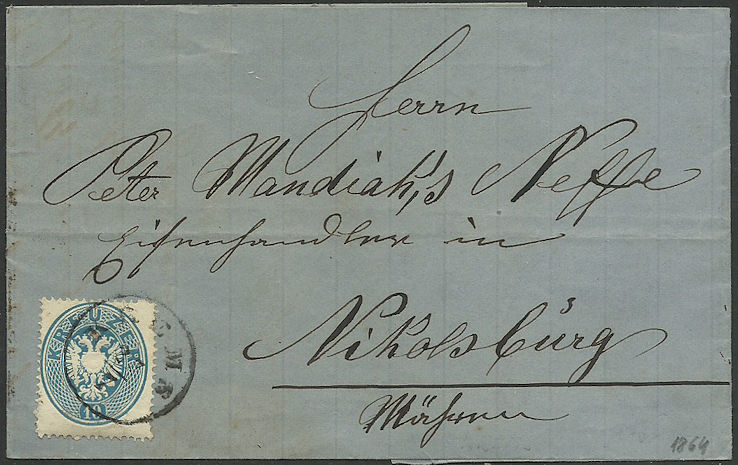 Herrn
Peter Mandiak's Neffe
Eisenhandler in
Nikolsburg
Mähren
KREUZER
10
KREMS
1864